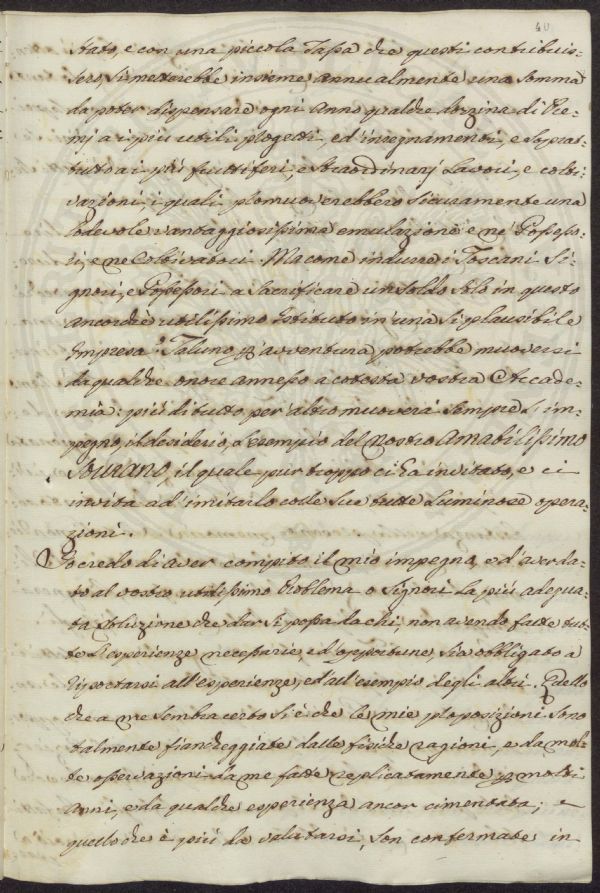 40
stato, e con una piccola Tassa che questi contribuis-
sero, si metterebbe insieme annualmente una Somma
da poter dispensare ogni Anno qualche dozzina di Pre-
mj a i più utili progetti, ed insegnamenti, e soprat-
tutto ai più fruttiferi, e straordinarj Lavori, e colti-
vazioni, i quali promuoverebbero sicuramente una
lodevole vantaggiosissima emulazione e ne' Possesso-
ri, e ne Coltivatori. Ma come indurre i Toscani Si-
gnori, e Possessori a sacrificare un Soldo solo in questo
ancorchè utilissimo Istituto in una sì plausibile
Impresa? Taluno p avventura potrebbe muoversi
da qualche onore annesso a cotesta vostra Accade-
mia: più di tutto per altro muoverà sempre l'im-
pegno, il desiderio, l'esempio del Nostro Amabilissimo
Sovrano, il quale pur troppo ci ha invitato, e ci
invita ad' imitarlo colle sue tutte luminose opera-
zioni.
Io credo di aver compito il mio impegno, e d'aver da-
to al vostro utilissimo Problema o Signori la più adegua-
ta soluzione che dar si possa da chi, non avendo fatte tut-
te l'esperienze necessarie, ed opportune, sia obbligato a
riportarsi all'esperienze, ed all'esempio degli altri. Quello
che a me sembra certo si è che le mie proposizioni sono
talmente fiancheggiate dalle fisiche ragioni, e da mol-
te osservazioni da me fatte replicatamente p molti
anni, e da qualche esperienza ancor cimentata; e
quello che è più da valutarsi, son confermate in